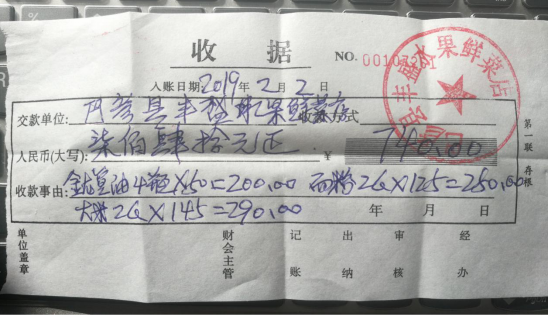 收 据
NO. 00107
入账日期:2019年2月2日
交款单位: 丰盛水果鲜菜店 收款方式
人民币(大写): 柒佰肆拾元正 ¥ 740.00
收款事由: 油4瓶×50=200.00 面粉2G×125=250.00
大米2G×145=290.00 年 月 日
第一联 存根
单位盖章 财会主管 记账 出纳 审核 经办
丰盛水果鲜菜店